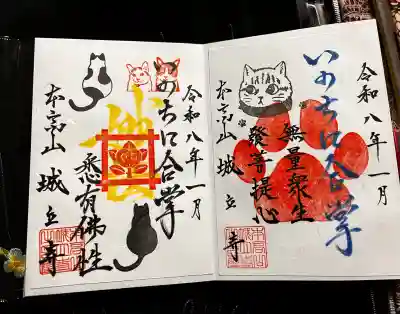 令和八年一月
いのちに合掌
無量衆生
發菩提心
城立寺
令和八年一月
いのちに合掌
悉有佛性
城立寺